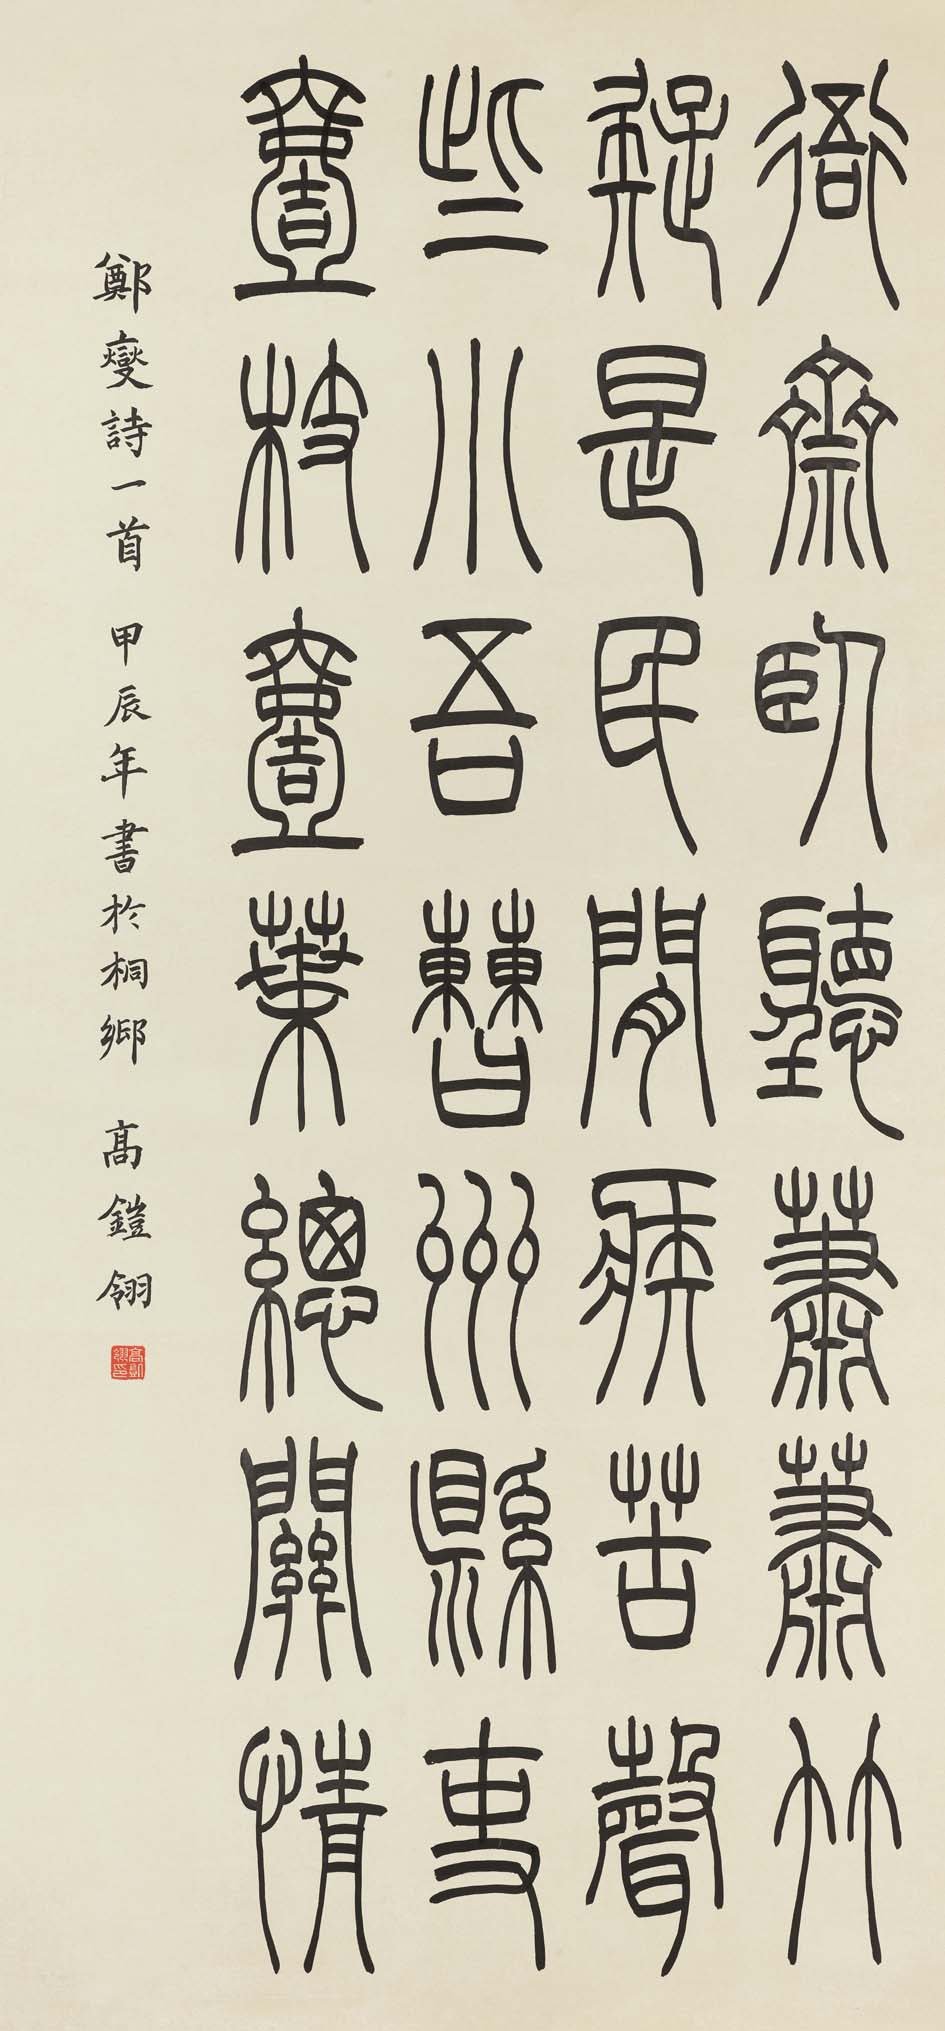 衙齋臥聽蕭蕭竹
疑是民間疾苦聲
些小吾曹州縣吏
壹枝壹葉總關情
鄭燮詩一首 甲辰年書於桐鄉 高鎧翎